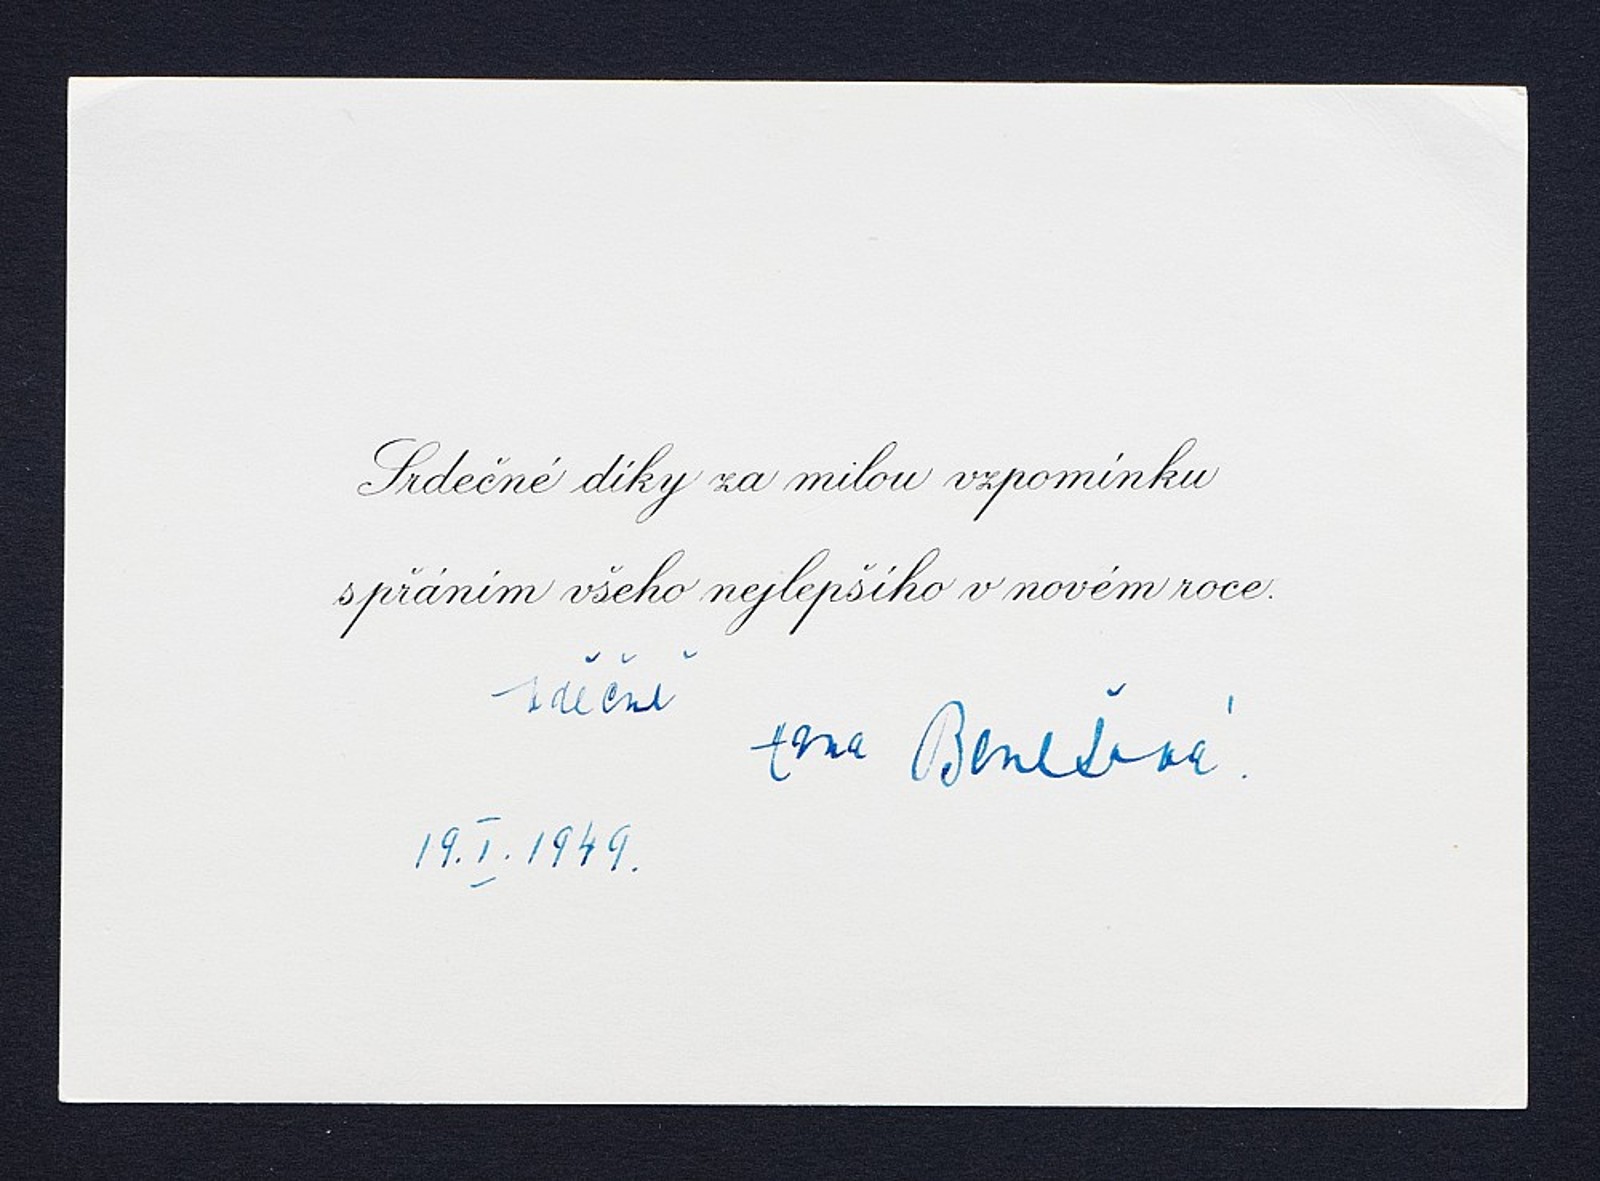 Srdečné díky za milou vzpomínku
s přáním všeho nejlepšího v novém roce.
vděčně
Hana Benešová.
19.I.1949.